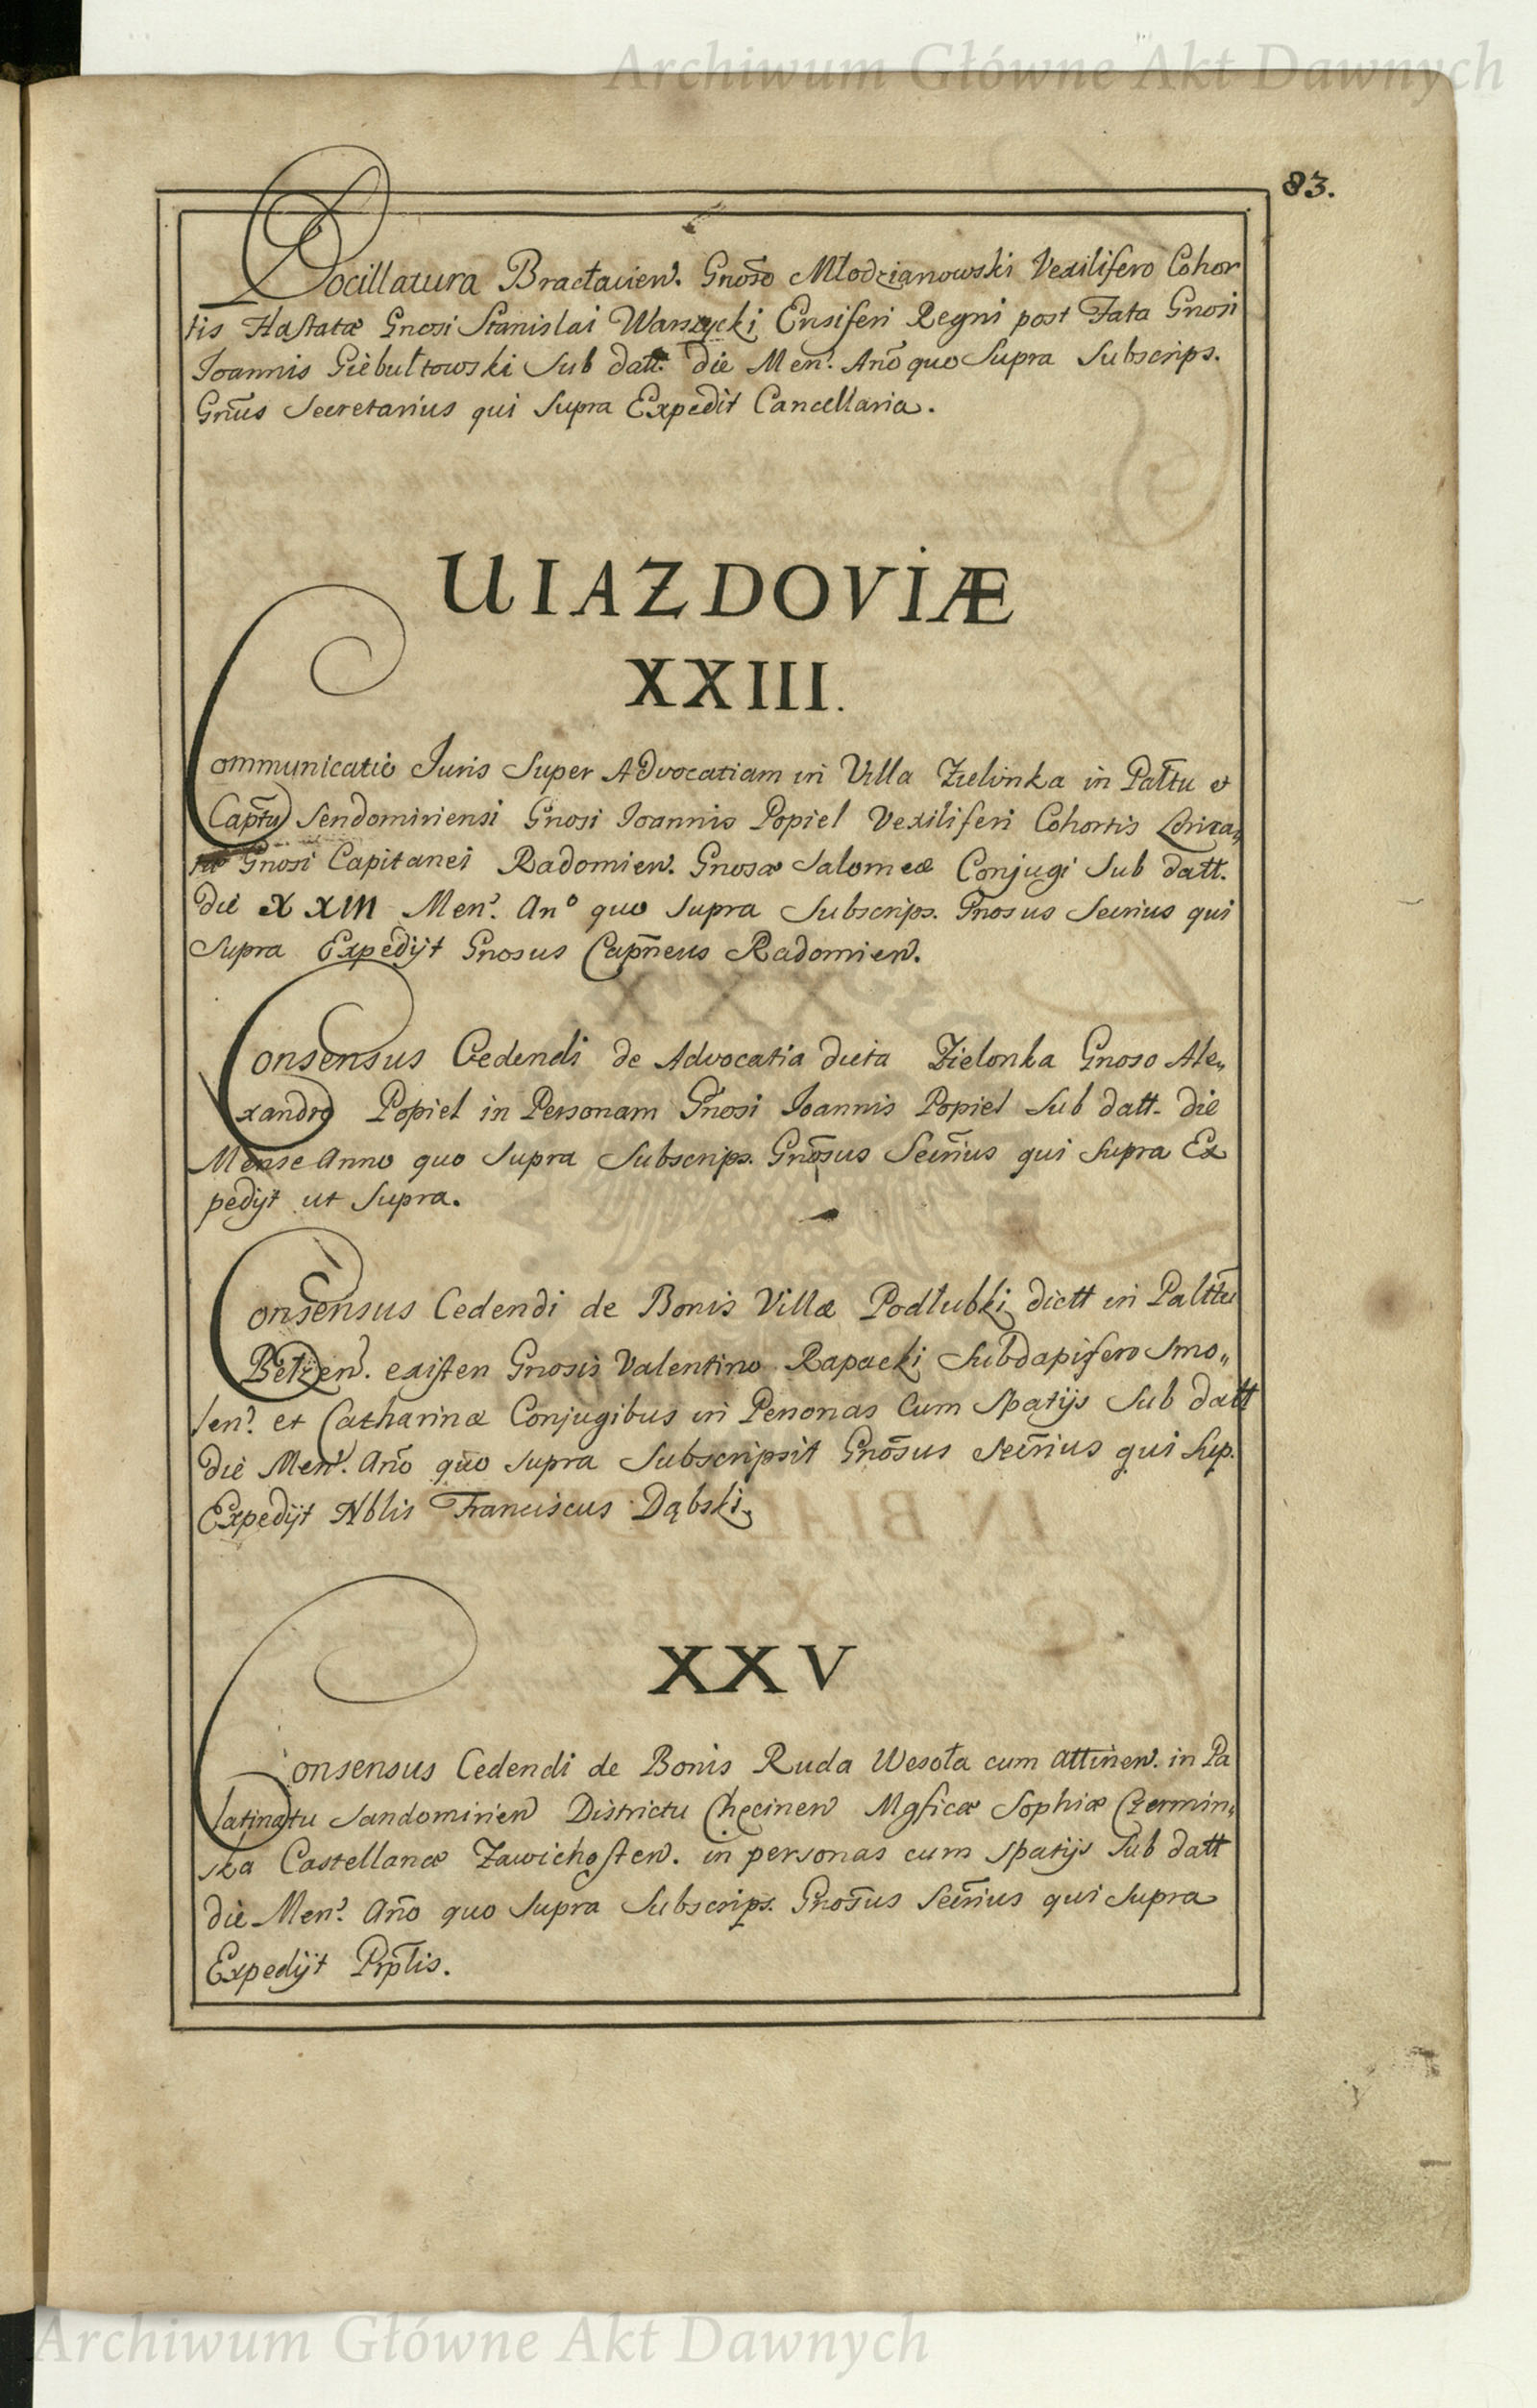 Archiwum Główne Akt Dawnych
83.
Pocillatura Bracłavien. Gnoso Młodzianowski Vexilifero Cohor
tis Hastatæ Gnosi Stanislai Warszycki Ensiferi Regni post Fata Gnosi
Joannis Giebułtowski Sub datt. die Men. Año quo Supra Subscrips.
Gnus Secretarius qui Supra Expedit Cancellaria.
UIAZDOVIÆ
XXIII.
Communicatio Juris Super Advocatiam in Villa Zielonka in Palttu et
Captu Sendomiriensi Gnosi Joannis Popiel Vexiliferi Cohortis Lorica„
tæ Gnosi Capitanei Radomien. Gnosæ Salomeæ Conjugi Sub datt.
die XXIII Men. Anº quo Supra Subscrips. Gnosus Secrius qui
Supra Expedijt Gnosus Capneus Radomien.
Consensus Cedendi de Advocatia dicta Zielonka Gnoso Ale„
xandro Popiel in Personam Gnosi Joannis Popiel Sub datt. die
Mense Anno quo Supra Subscrips. Gnosus Secrius qui Supra Ex
pedijt ut Supra.
Consensus Cedendi de Bonis Villæ Podłubki dictt in Palttu
Belzen. existen Gnosis Valentino Rapacki Subdapifero Smo„
len. et Catharinæ Conjugibus in Personas Cum Spatijs Sub datt
die Men. Año quo Supra Subscripsit Gnosus Secrius qui Sup.
Expedijt Nblis Franciscus Dąbski.
XXV
Consensus Cedendi de Bonis Ruda Wesoła cum attinen. in Pa
latinatu Sandomirien Districtu Chęcinen Mgficæ Sophiæ Czermin„
ska Castellanæ Zawichosten. in personas cum spatijs Sub datt
die Men. Año quo Supra Subscrips. Gnosus Secrius qui Supra
Expedijt Prptis.
Archiwum Główne Akt Dawnych